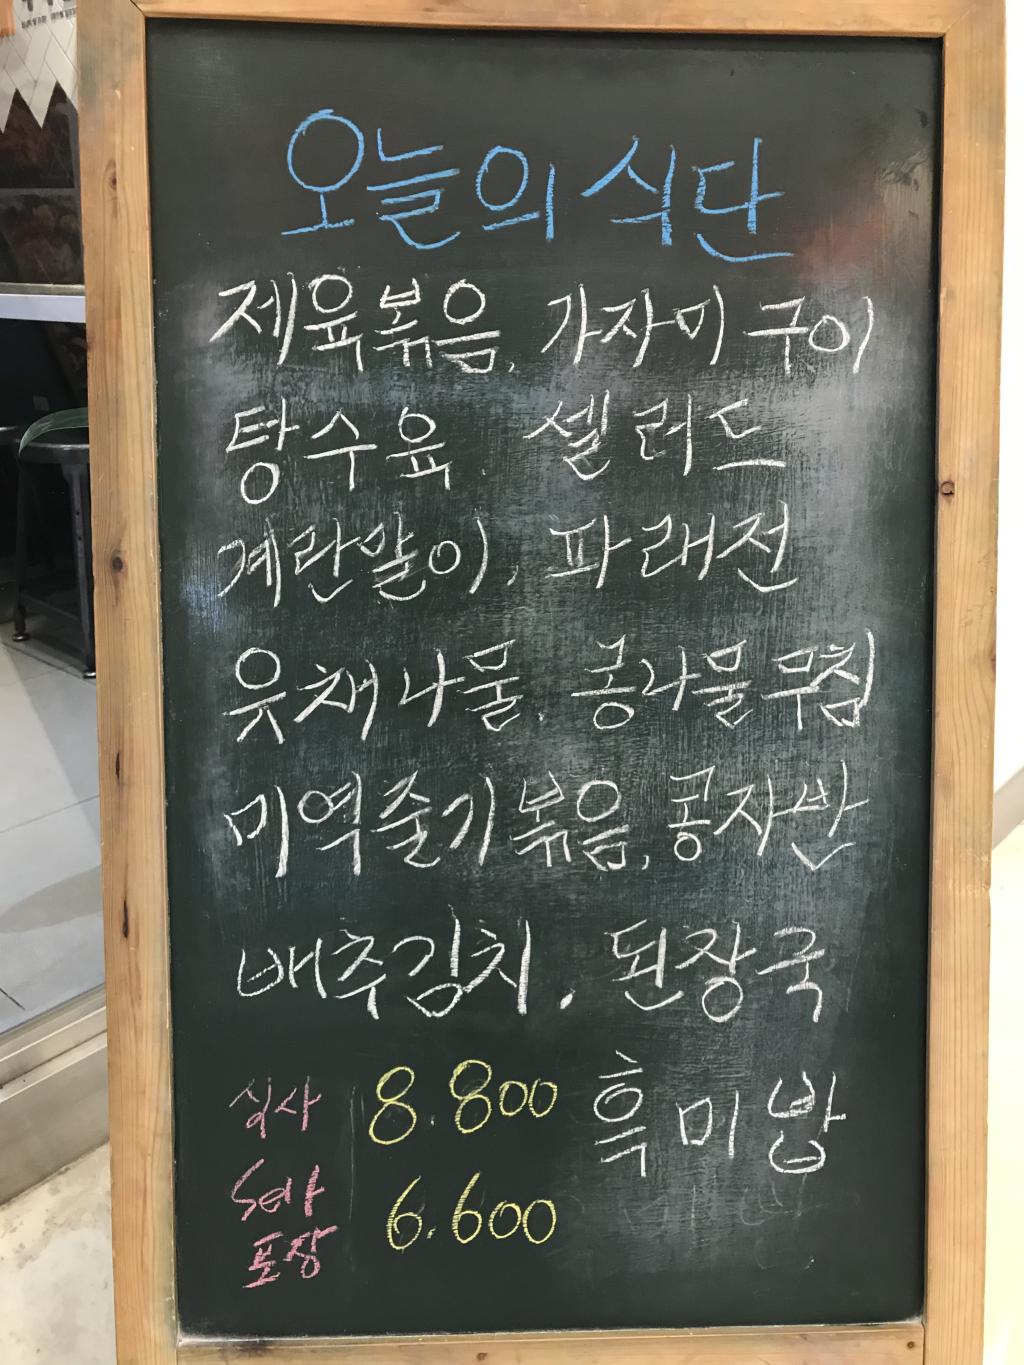 오늘의 식단
제육볶음, 가자미 구이
탕수육. 셀러드
계란말이, 파래전
윳채나물. 콩나물무침
미역줄기볶음, 콩자반
배추김치. 된장국
식사 8.800 흑미밥
포장 6.600